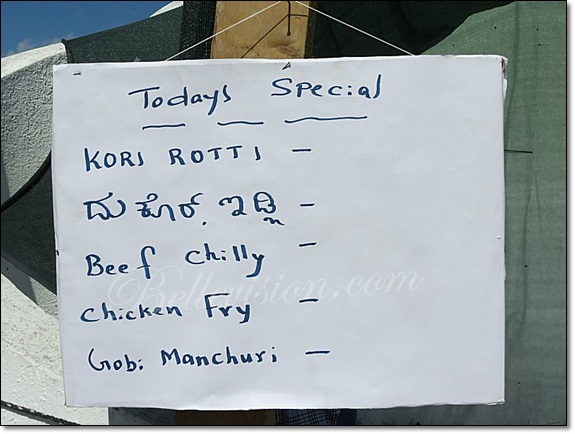 Todays Special
KORI ROTTI –
ದುಕೊರ್. ಇಡ್ಲಿ –
Beef chilly –
Bellevision.com
chicken Fry –
Gobi Manchuri –